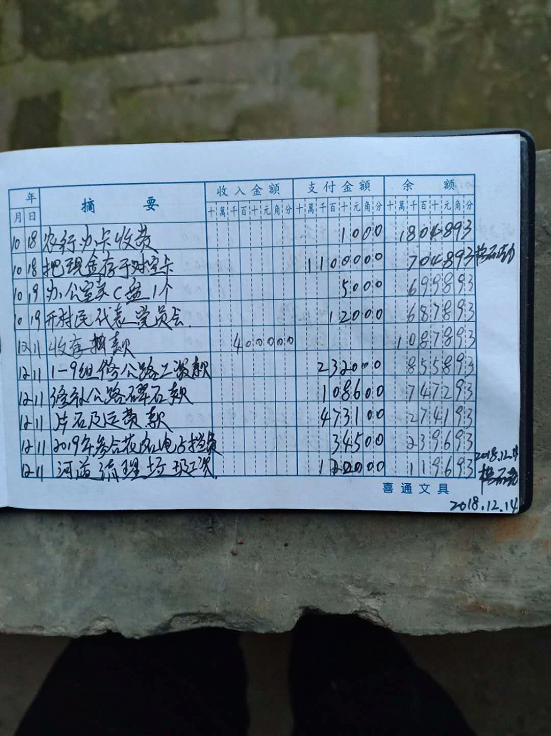 年 摘要 收入金额 支付金额 余额
月 日 十 萬 千 百 十 元 角 分 十 萬 千 百 十 元 角 分 十 萬 千 百 十 元 角 分
10 18 农行办卡收费 1000 1804893
10 18 把现金存于对公卡 1100000 704893
10 19 办公室买C盘1个 5000 699893
10 19 开村民代表党员会. 12000 687893
12 11 收存拨款 400000 1087893
12 11 1-9组修公路工资款 232000 855893
12 11 公路碎石款 108600 747293
12 11 片石及运费款 473100 274193
12 11 2019年参合花名电子档费 34500 239693
12 11 河道清理垃圾工资 120000 119693
2018.12.14
喜通文具
2018.12.14